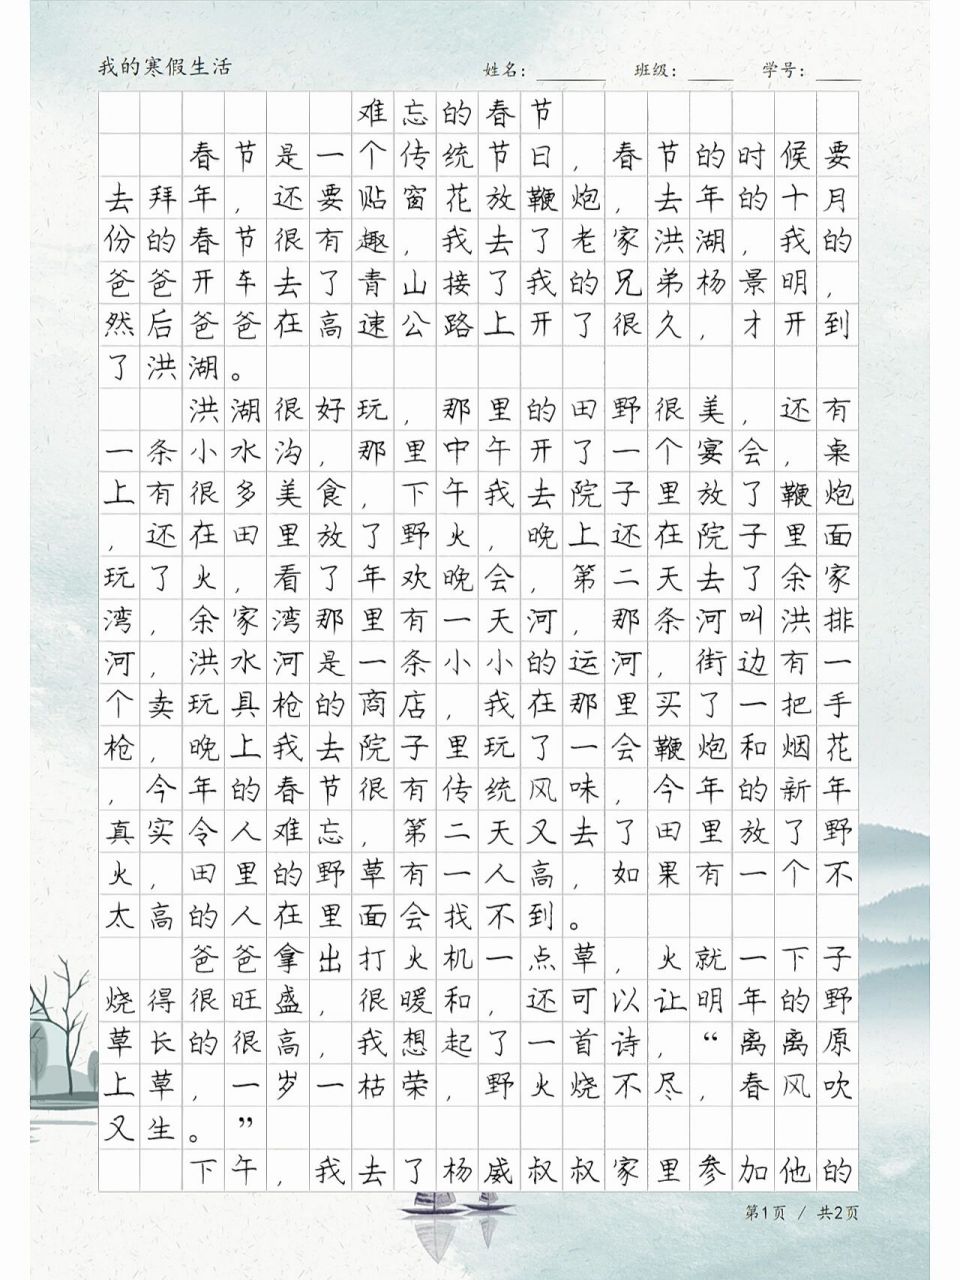 我的寒假生活 姓名: 班级: 学号:
难忘的春节
春节是一个传统节日,春节的时候要
去拜年,还要贴窗花放鞭炮,去年的十月
份的春节很有趣,我去了老家洪湖,我的
爸爸开车去了青山接了我的兄弟杨景明,
然后爸爸在高速公路上开了很久,才开到
了洪湖。
洪湖很好玩,那里的田野很美,还有
一条小水沟,那里中午开了一个宴会,桌
上有很多美食,下午我去院子里放了鞭炮
,还在田里放了野火,晚上还在院子里面
玩了火,看了年欢晚会,第二天去了余家
湾,余家湾那里有一天河,那条河叫洪排
河,洪水河是一条小小的运河,街边有一
个卖玩具枪的商店,我在那里买了一把手
枪,晚上我去院子里玩了一会鞭炮和烟花
,今年的春节很有传统风味,今年的新年
真实令人难忘,第二天又去了田里放了野
火,田里的野草有一人高,如果有一个不
太高的人在里面会找不到。
爸爸拿出打火机一点草,火就一下子
烧得很旺盛,很暖和,还可以让明年的野
草长的很高,我想起了一首诗,“离离原
上草,一岁一枯荣,野火烧不尽,春风吹
又生。”
下午,我去了杨威叔叔家里参加他的
第1页 / 共2页